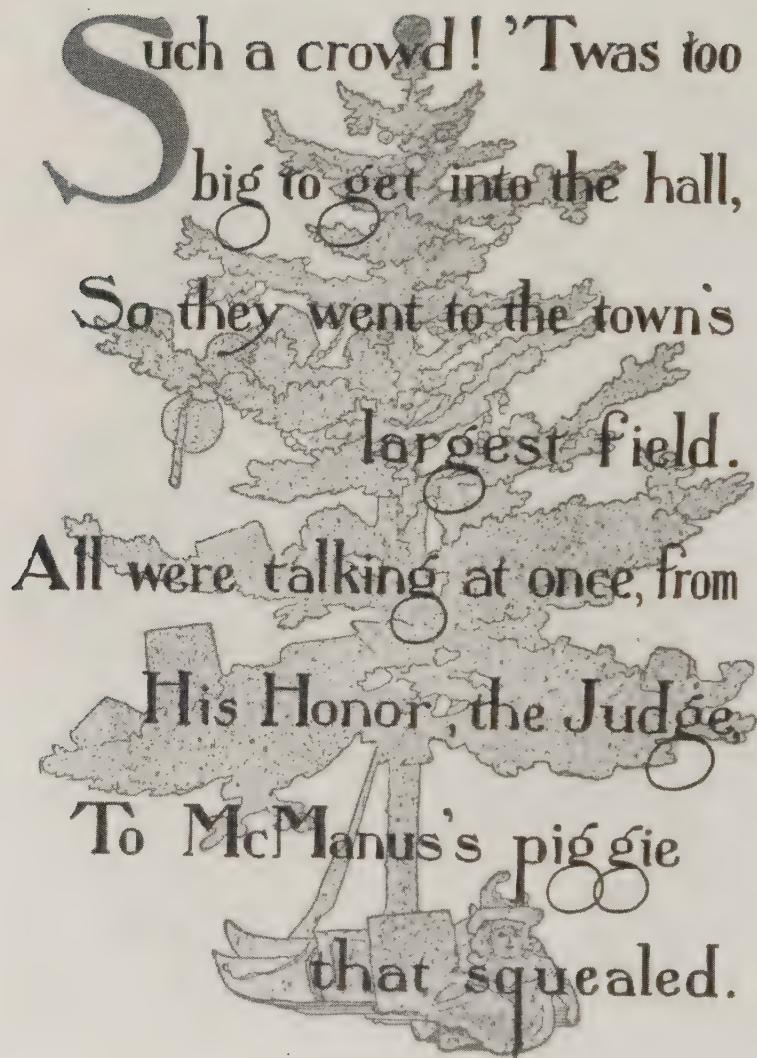 Such a crowd! 'Twas too
big to get into the hall,
So they went to the town's
largest field.
All were talking at once, from
His Honor, the Judge,
To McManus's piggie
that squealed.